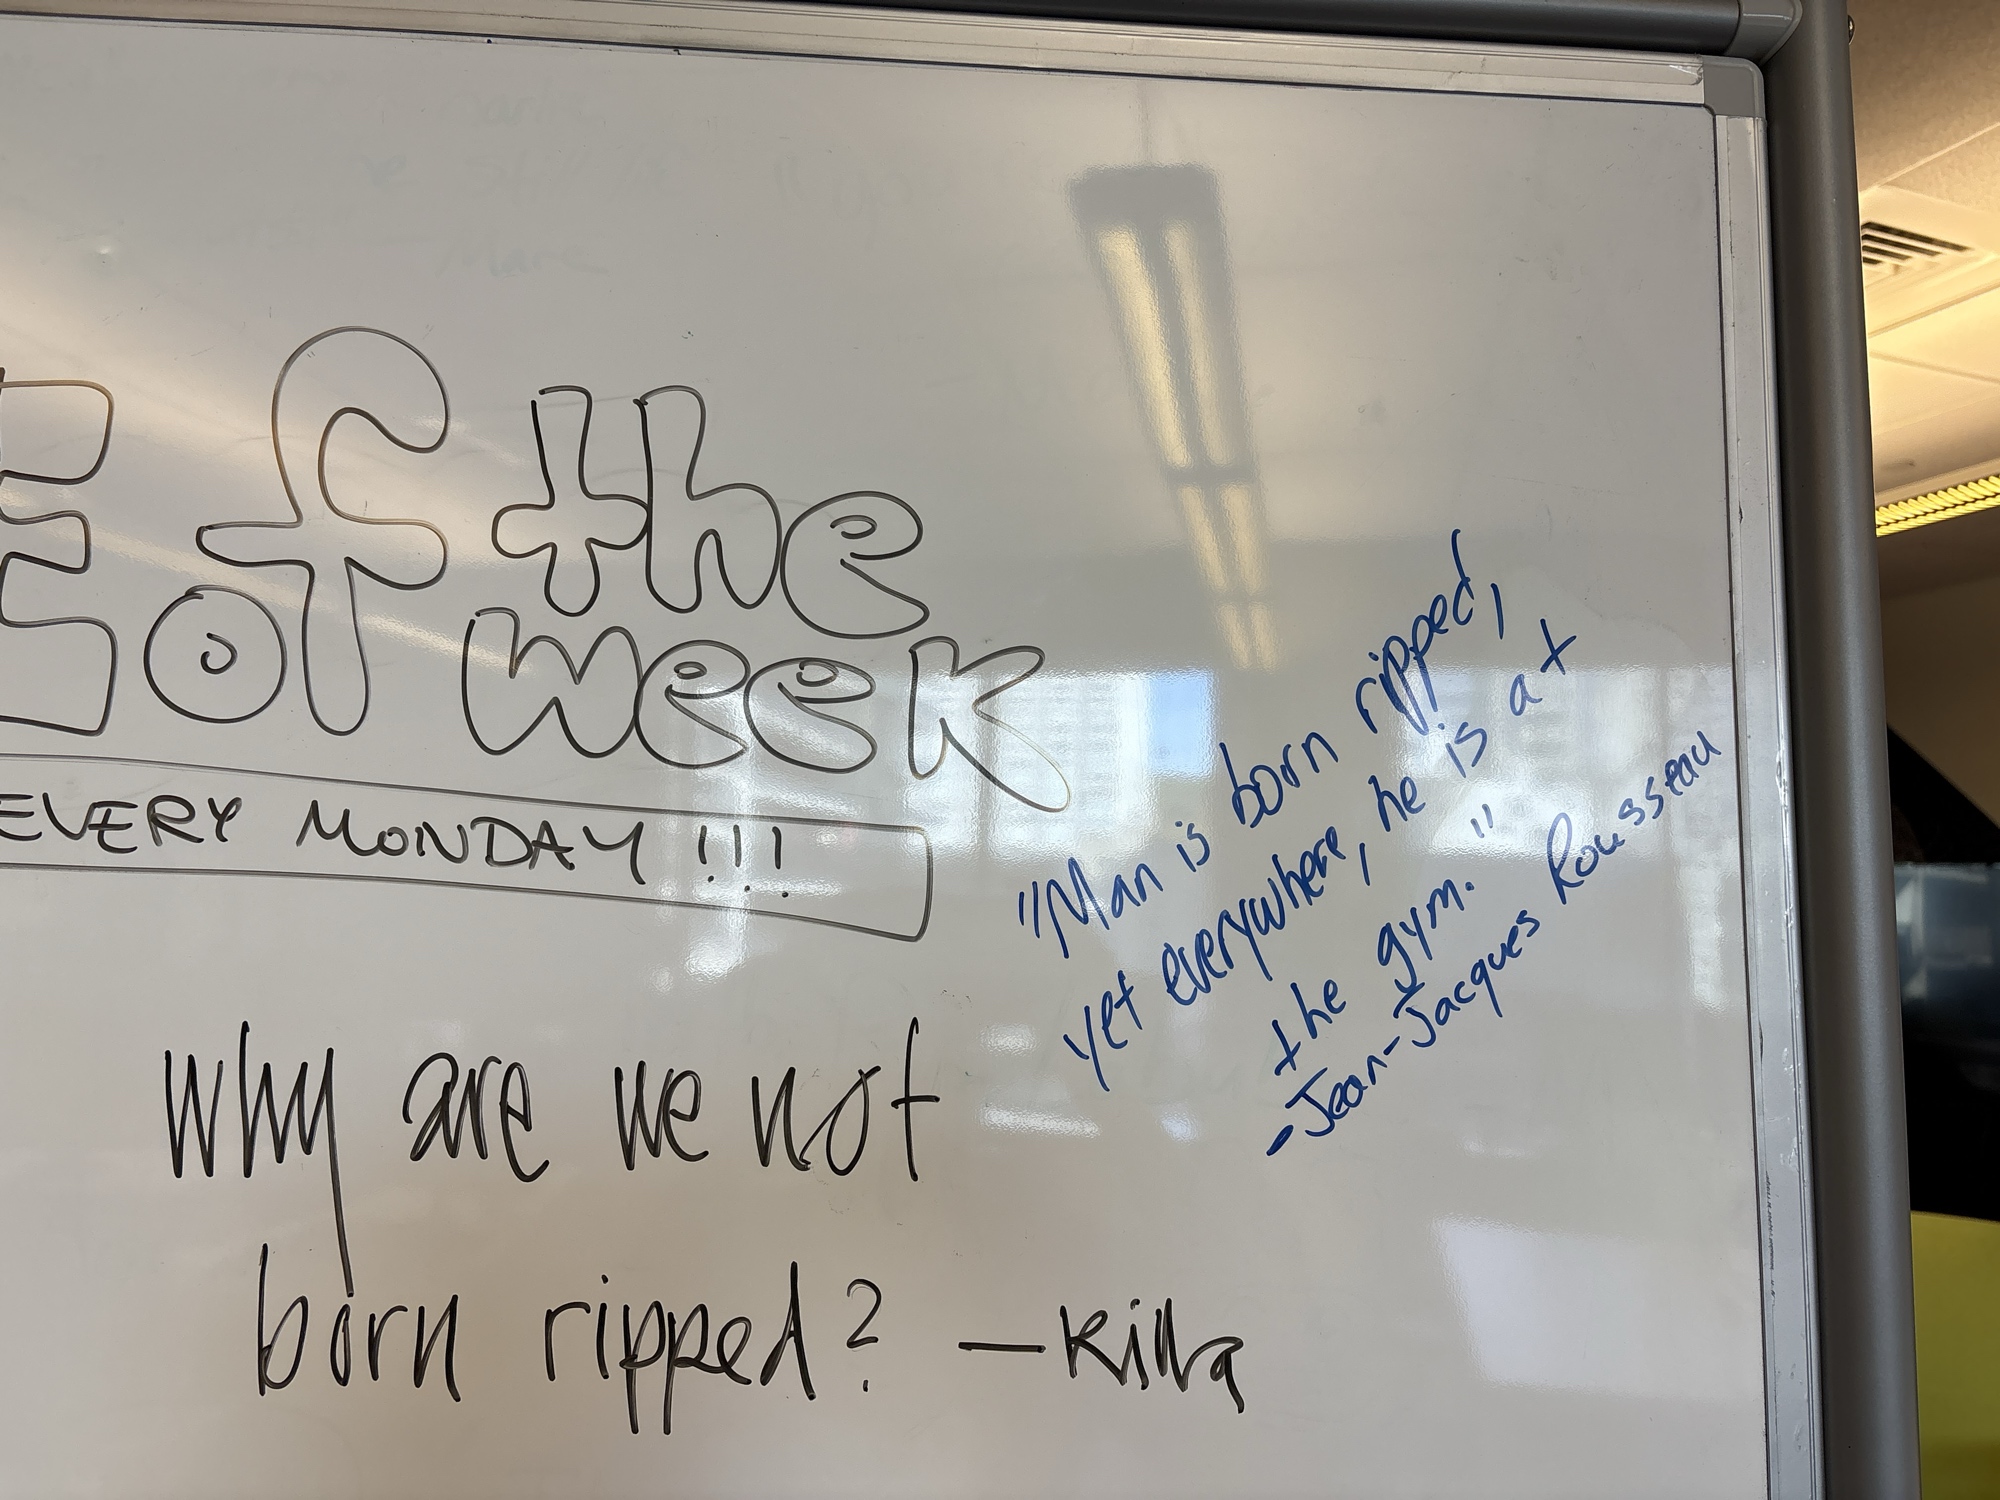 E of the
week
EVERY MONDAY !!!
why are we not
born ripped? — Killa
"Man is born ripped,
yet everywhere, he is at
the gym."
- Jean-Jacques Rousseau